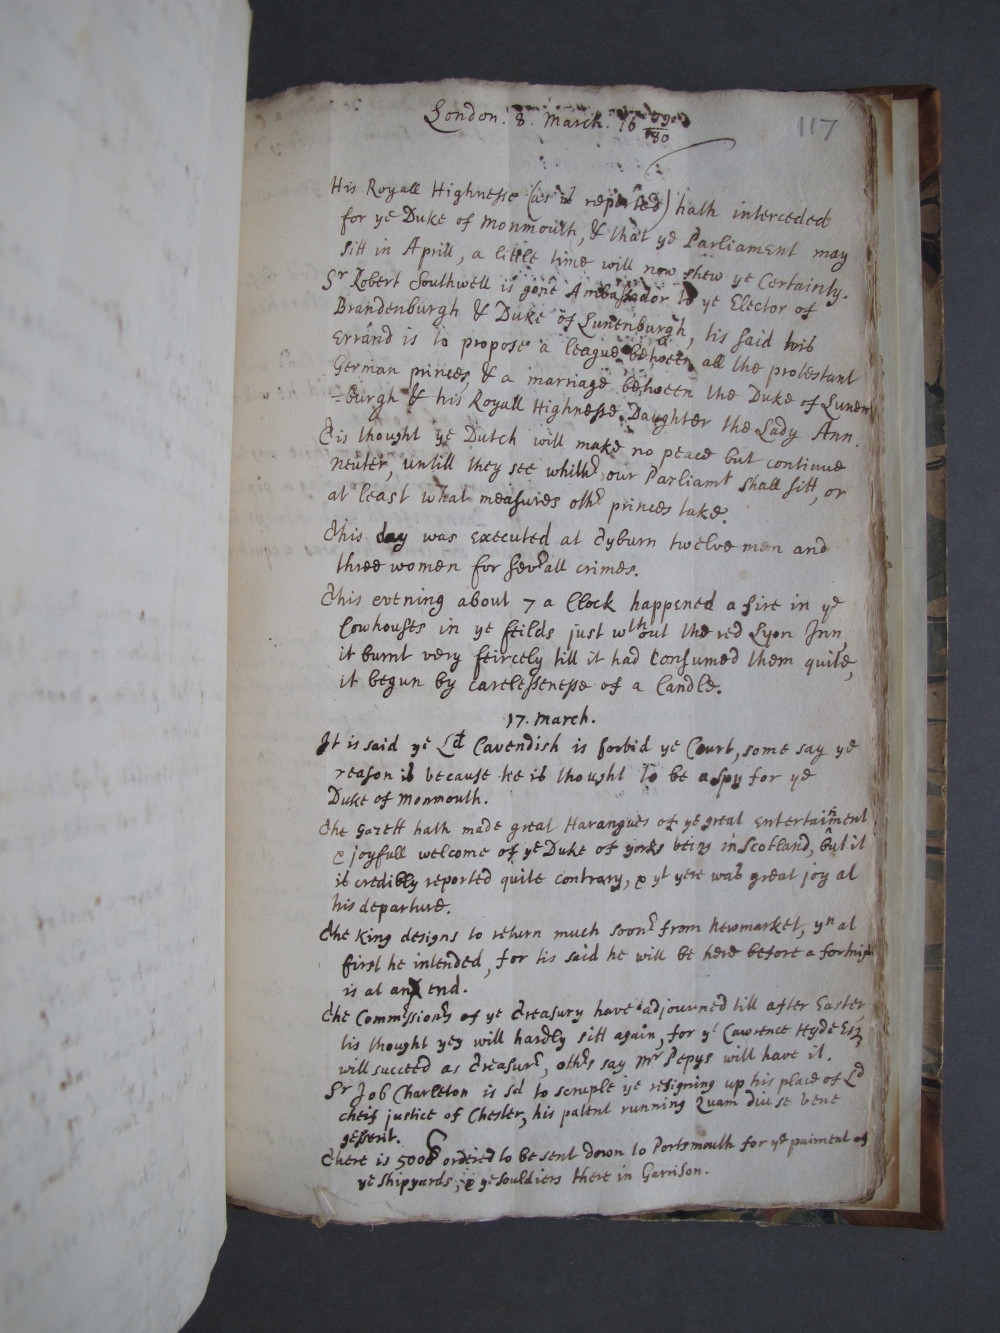 London. 8. March. 16 79/80
117
His Royall Highnesse (as is reported) hath interceded
for ye Duke of Monmouth, & that ye Parliament may
sitt in Aprill, a little time will now shew ye Certainty.
Sr Robert Southwell is gone Ambassador to ye Elector of
Brandenburgh & Duke of Lunenburgh, tis said his
Errand is to propose a league between all the protestant
German princes, & a marriage between the Duke of Lunen
=burgh & his Royall Highnesse Daughter the Lady Ann.
Tis thought ye Dutch will make no peace but continue
neuter, untill they see whithr our Parliamt shall sitt, or
at least what measures othr princes take.
This day was executed at Tyburn twelve men and
three women for severall crimes.
This evening about 7 a Clock happened a fire in ye
Cowhouses in ye feilds just wthout the red Lyon Inn,
it burnt very feircely till it had Consumed them quite,
it begun by carelessenesse of a Candle.
17. March.
It is said ye Ld Cavendish is forbid ye Court, some say ye
reason is because he is thought to be a spy for ye
Duke of Monmouth.
The Gazett hath made great Harangues of ye great entertainment
& joyfull welcome of ye Duke of yorks being in Scotland, but it
is credibly reported quite contrary, & yt yere was great joy at
his departure.
The King designs to return much soonr from Newmarket, yn at
first he intended, for tis said he will be here before a fortnight
is at an end.
The Commissionrs of ye Treasury have adjourned till after Easter
tis thought yey will hardly sitt again, for yt Lawrence Hyde Esq
will succeed as Treasurr, othrs say Mr Pepys will have it.
Sr Job Charleton is sd to scruple ye resigning up his place of Ld
cheif justice of Chester, his patent running Quam diu se bene
gesserit.
There is 5000 ordered to be sent down to Portsmouth for ye paiment of
ye shipyards, & ye souldiers there in Garrison.